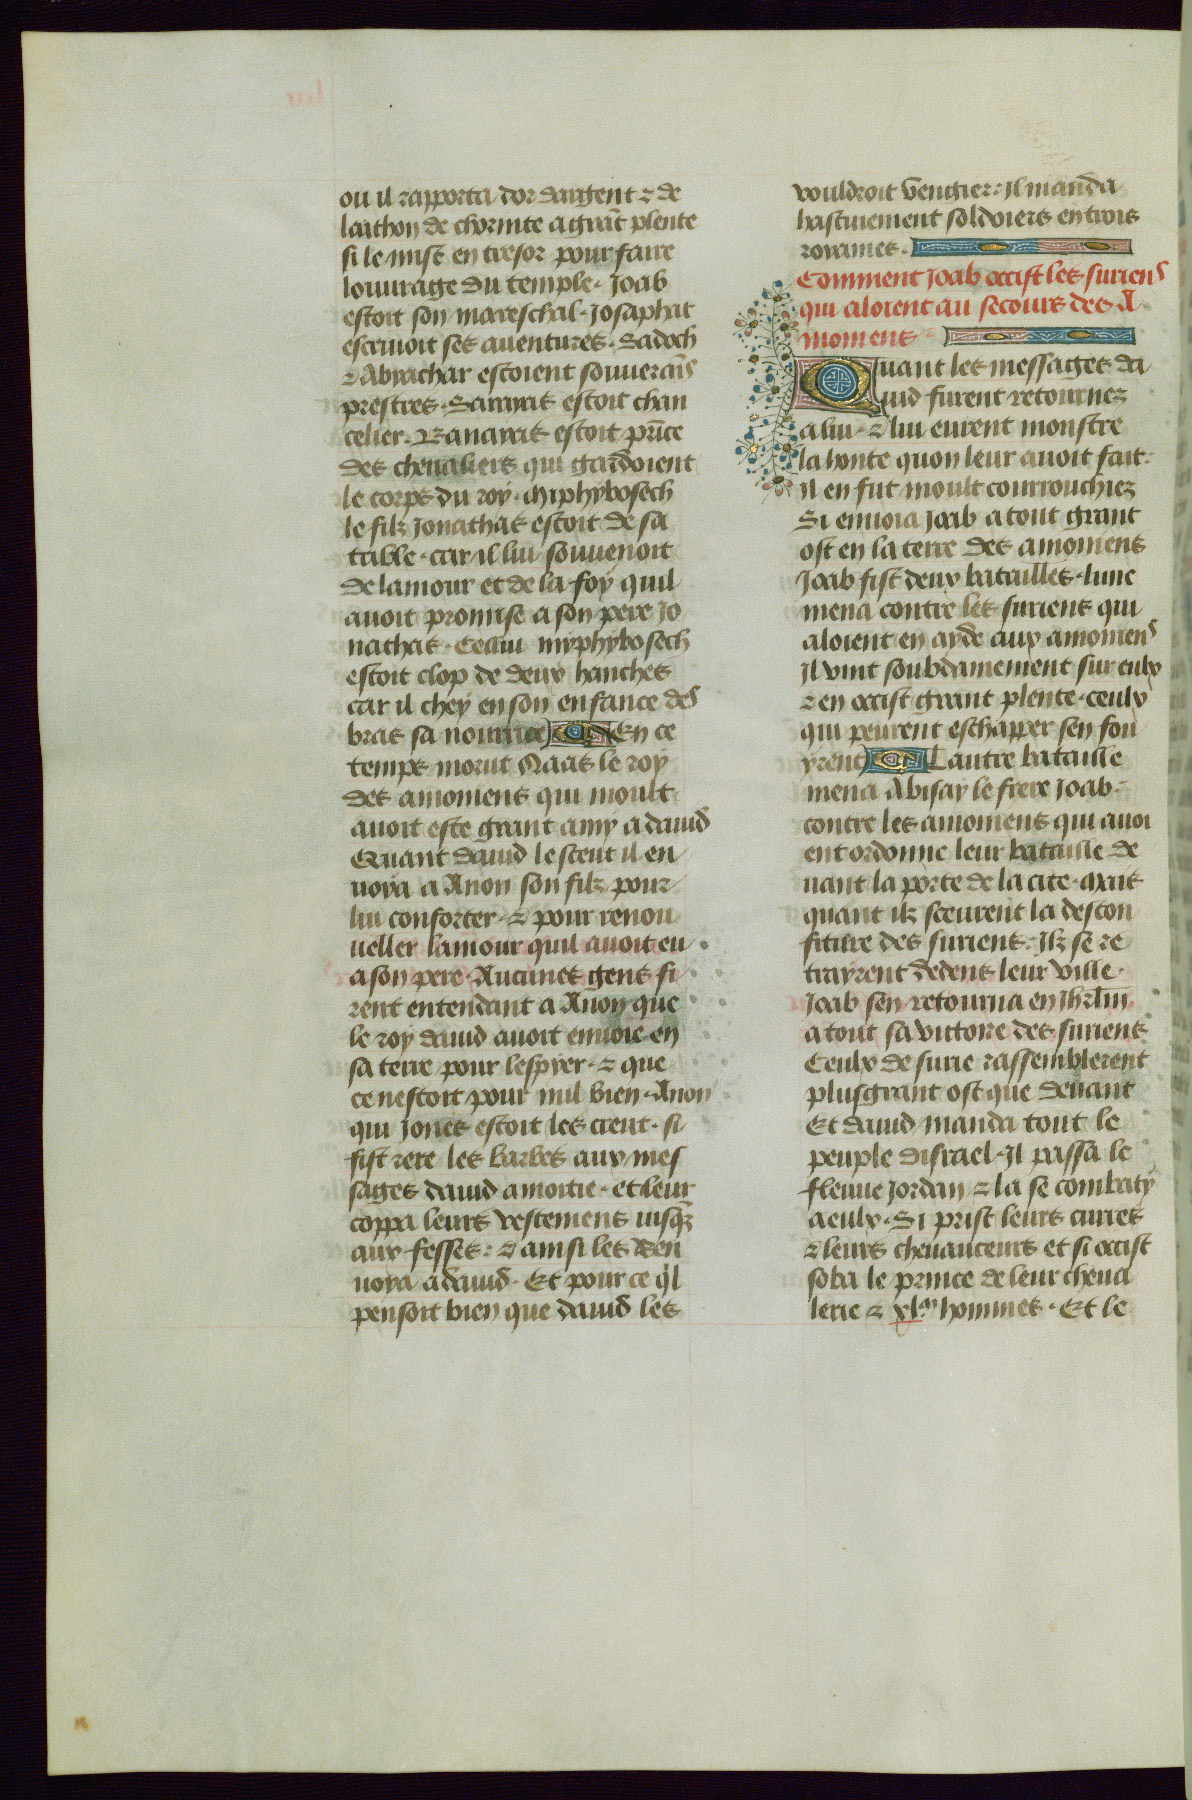 ou il rapporta dor dargent ⁊ de
laithon de chorinte a grāt plente
si le mist en tresor pour faire
louurage du temple. Joab
estoit son mareschal. Josaphat
escriuoit ses auentures. Sadoch
⁊ Abyachar estoient souuerais̄
prestres. Sarayas estoit chan
celier. Banayas estoit prīce
des cheualiers qui gardoient
le corps du roy. Miphybosech
le filz Jonathas estoit de sa
table. car il lui souuenoit
de lamour et de la foy quil
auoit promise a son pere Jo
nathas. Cellui myphybosech
estoit clop de deux hanches
car il chey en son enfance des
bras sa nourrice En ce
temps morut Naas le roy
des amoniens qui moult
auoit este grant amy a dauid
Quant dauid le sceut il en
uoya a Anon son filz pour
lui conforter. ⁊ pour renou
ueller lamour quil auoit eu
a son pere. Aucunes gens fi
rent entendant a Anon que
le roy dauid auoit enuoie en
sa terre pour lespyer. ⁊ que
ce nestoit pour nul bien. Anon
qui Jones estoit les creut. si
fist rere les barbes aux mes
sages dauid a moitie. et leur
coppa leurs vestemens iusqz̄
aux fesses. ⁊ ainsi les Ren
uoya a dauid. Et pour ce ql̄
pensoit bien que dauid les
vouldroit Vengier. Il manda
hastiuement soldoiers en trois
royames.
Comment Joab occist les suriens
qui aloient au secours des A
moniens
Quant les messages da
uid furent retournez
a lui. ⁊ lui eurent monstre
la honte quon leur auoit fait.
il en fut moult courrouchiez
Si enuoia Joab a tout grant
ost en la terre des amoniens
Joab fist deux batailles. lune
mena contre les suriens qui
aloient en ayde aux amoniens
Il vint soubdainement sur eulx
⁊ en occist grant plente. ceulx
qui peurent eschapper sen fou
yrent Lautre bataille
mena Abisay le frere Joab.
contre les amoniens qui auoi
ent ordonne leur bataille de
uant la porte de la cite. Mais
quant ilz sceurent la descon
fiture des suriens. Ilz se re
trayrent dedens leur ville.
Joab sen retourna en Jhrl̄m
a tout sa victoire des suriens
Ceulx de surie rassemblerent
plusgrant ost que deuant
Et dauid manda tout le
peuple disrael. Il passa le
fleuue Jordan ⁊ la se combaty
a eulx. Si prist leurs curres
⁊ leurs cheuauceurs et si occist
soba le prince de leur cheua
lerie ⁊ xl.m hommes. Et le